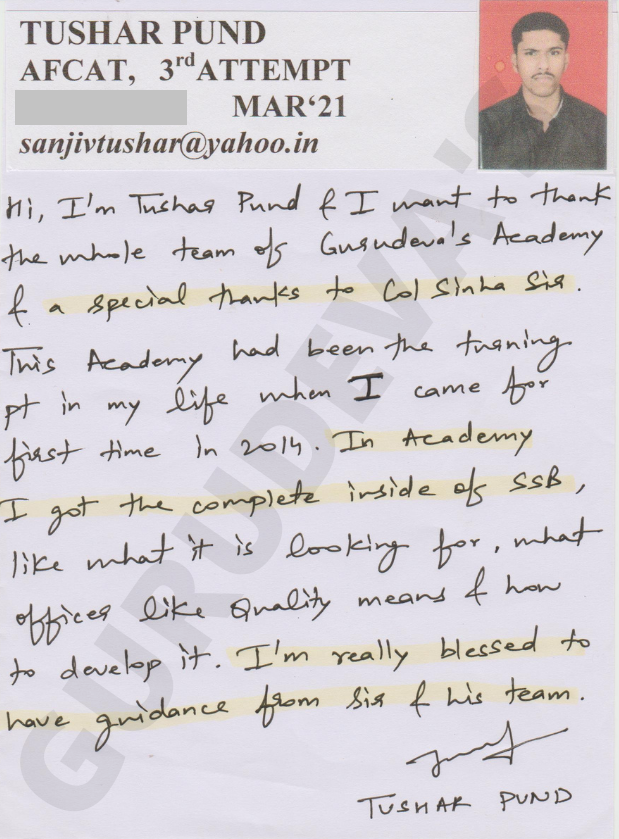 TUSHAR PUND
AFCAT, 3rd ATTEMPT
MAR'21
sanjivtushar@yahoo.in
Hi, I'm Tushar Pund & I want to thank
the whole team of Gurudeva's Academy
& a special thanks to Col Sinha Sir.
This Academy had been the turning
pt in my life when I came for
first time in 2014. In Academy
I got the complete inside of SSB,
like what it is looking for, what
officer like Quality means & how
to develop it. I'm really blessed to
have guidance from Sir & his team.
TUSHAR PUND
GURUDEVA'S